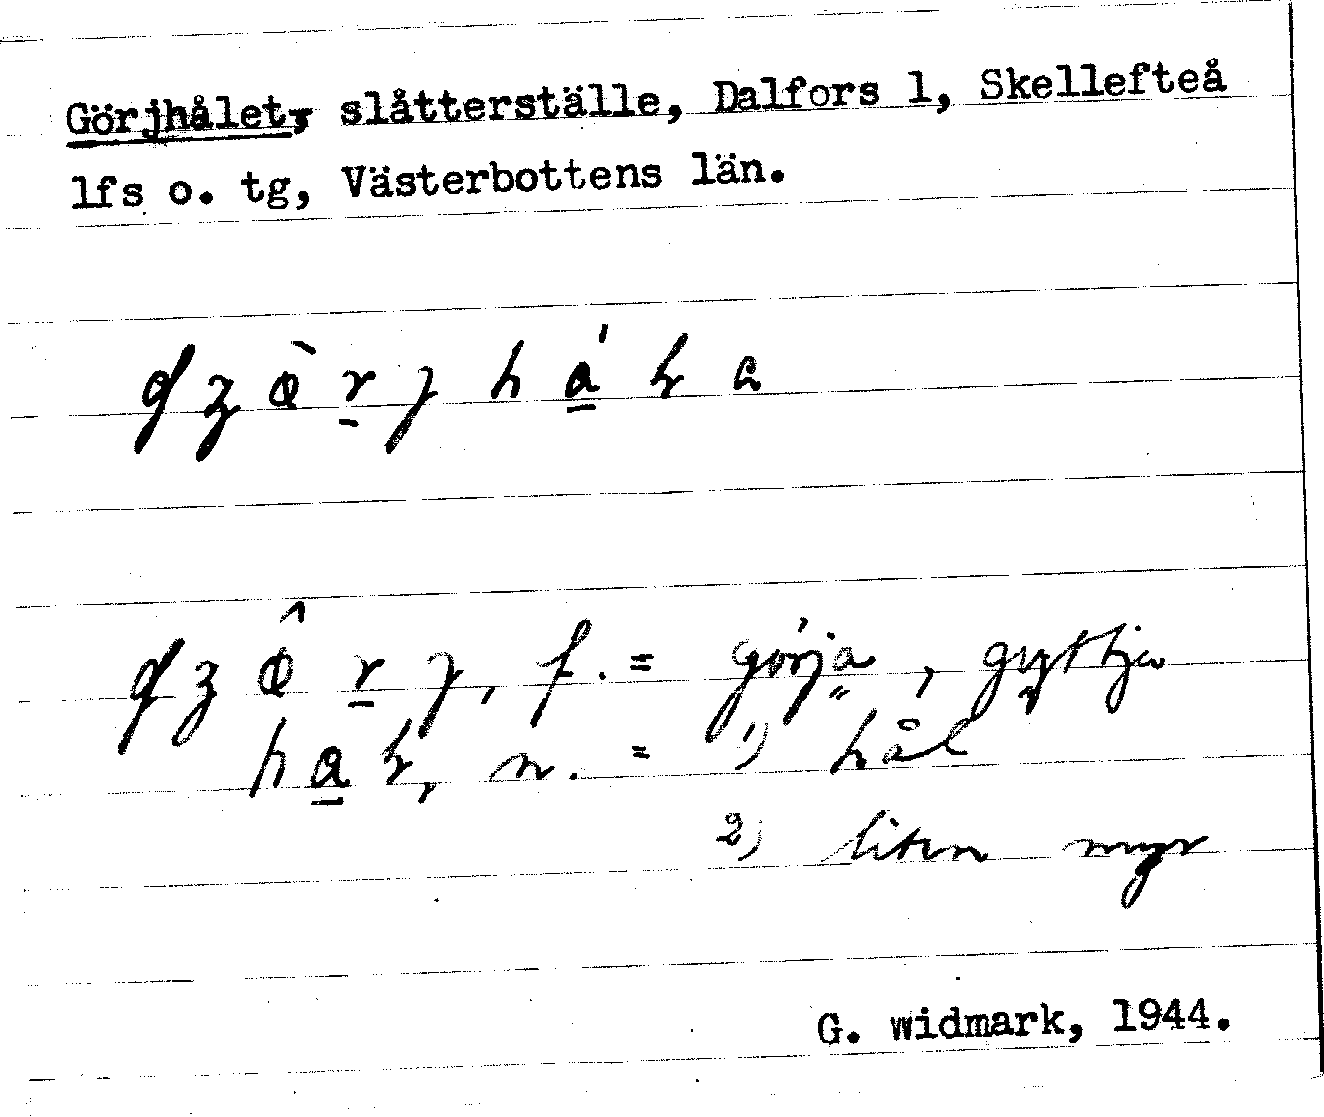 Görjhålet, slåtterställe, Dalfors 1, Skellefteå
lfs o. tg, Västerbottens län.
f. = görja, gyttja
n. = 1) hål
2) liten myr
G. widmark, 1944.